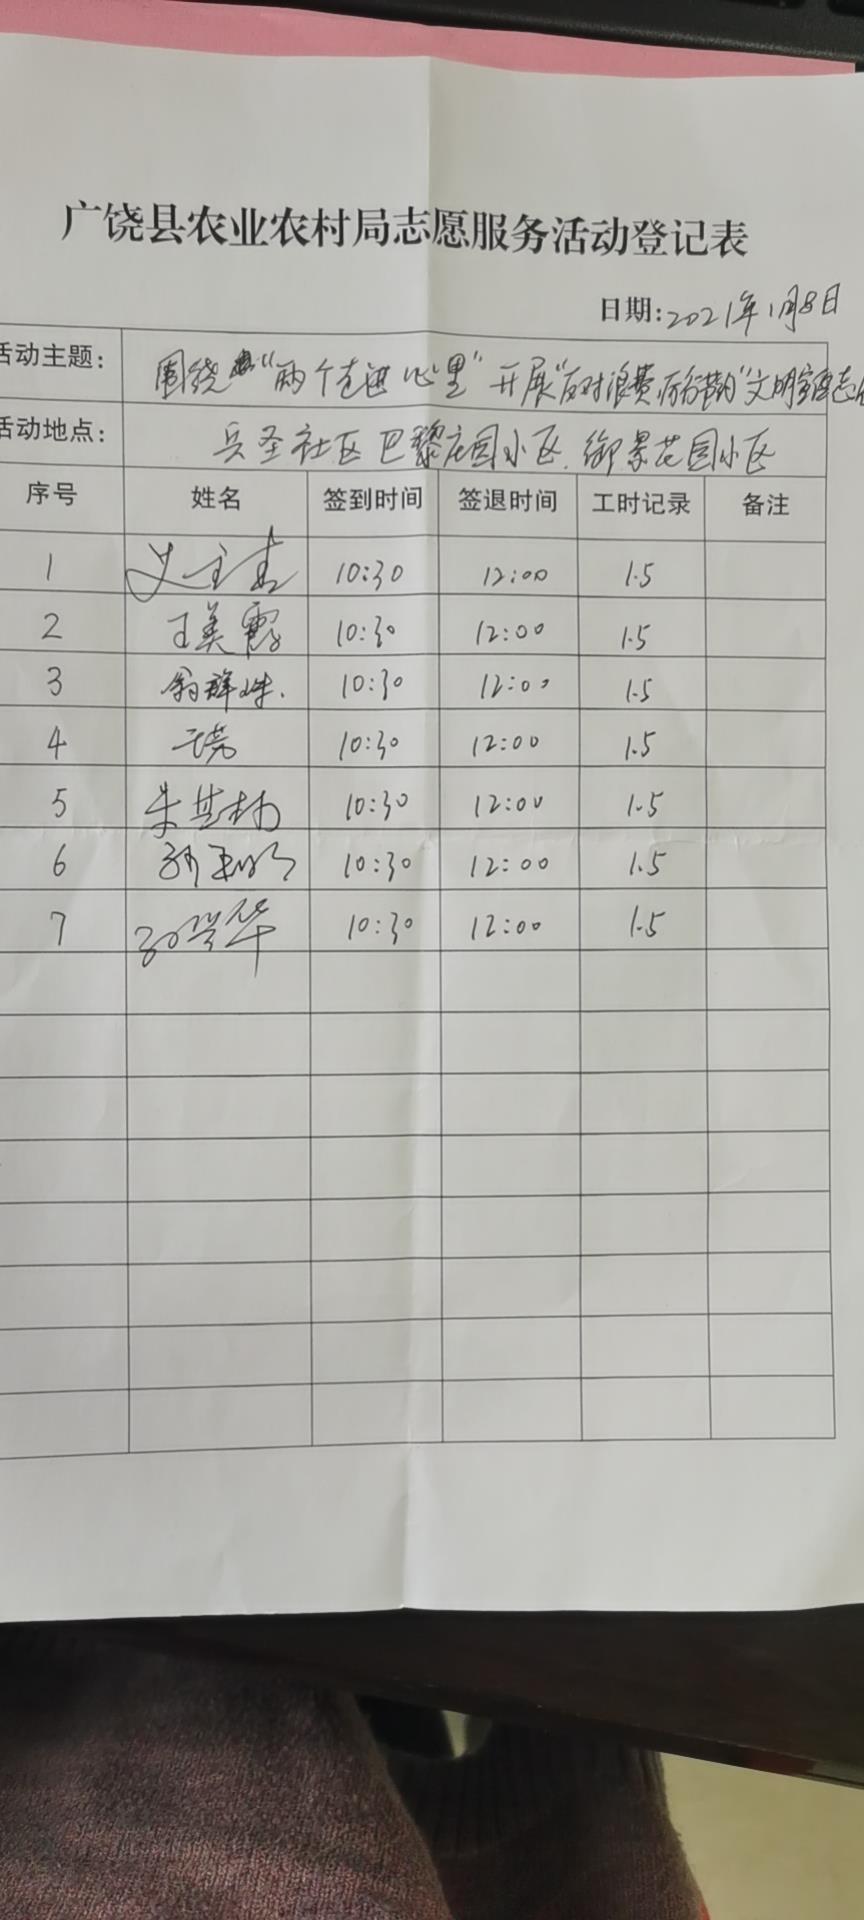 广饶县农业农村局志愿服务活动登记表
日期:2021年1月8日
活动主题: 围绕"两个走进心里"开展"反对浪费,厉行节约"文明
活动地点: 兵圣社区巴黎庄园小区、御景花园小区
序号 姓名 签到时间 签退时间 工时记录 备注
1 10:30 12:00 1.5
2 王美霞 10:30 12:00 1.5
3 10:30 12:00 1.5
4 10:30 12:00 1.5
5 10:30 12:00 1.5
6 10:30 12:00 1.5
7 10:30 12:00 1.5